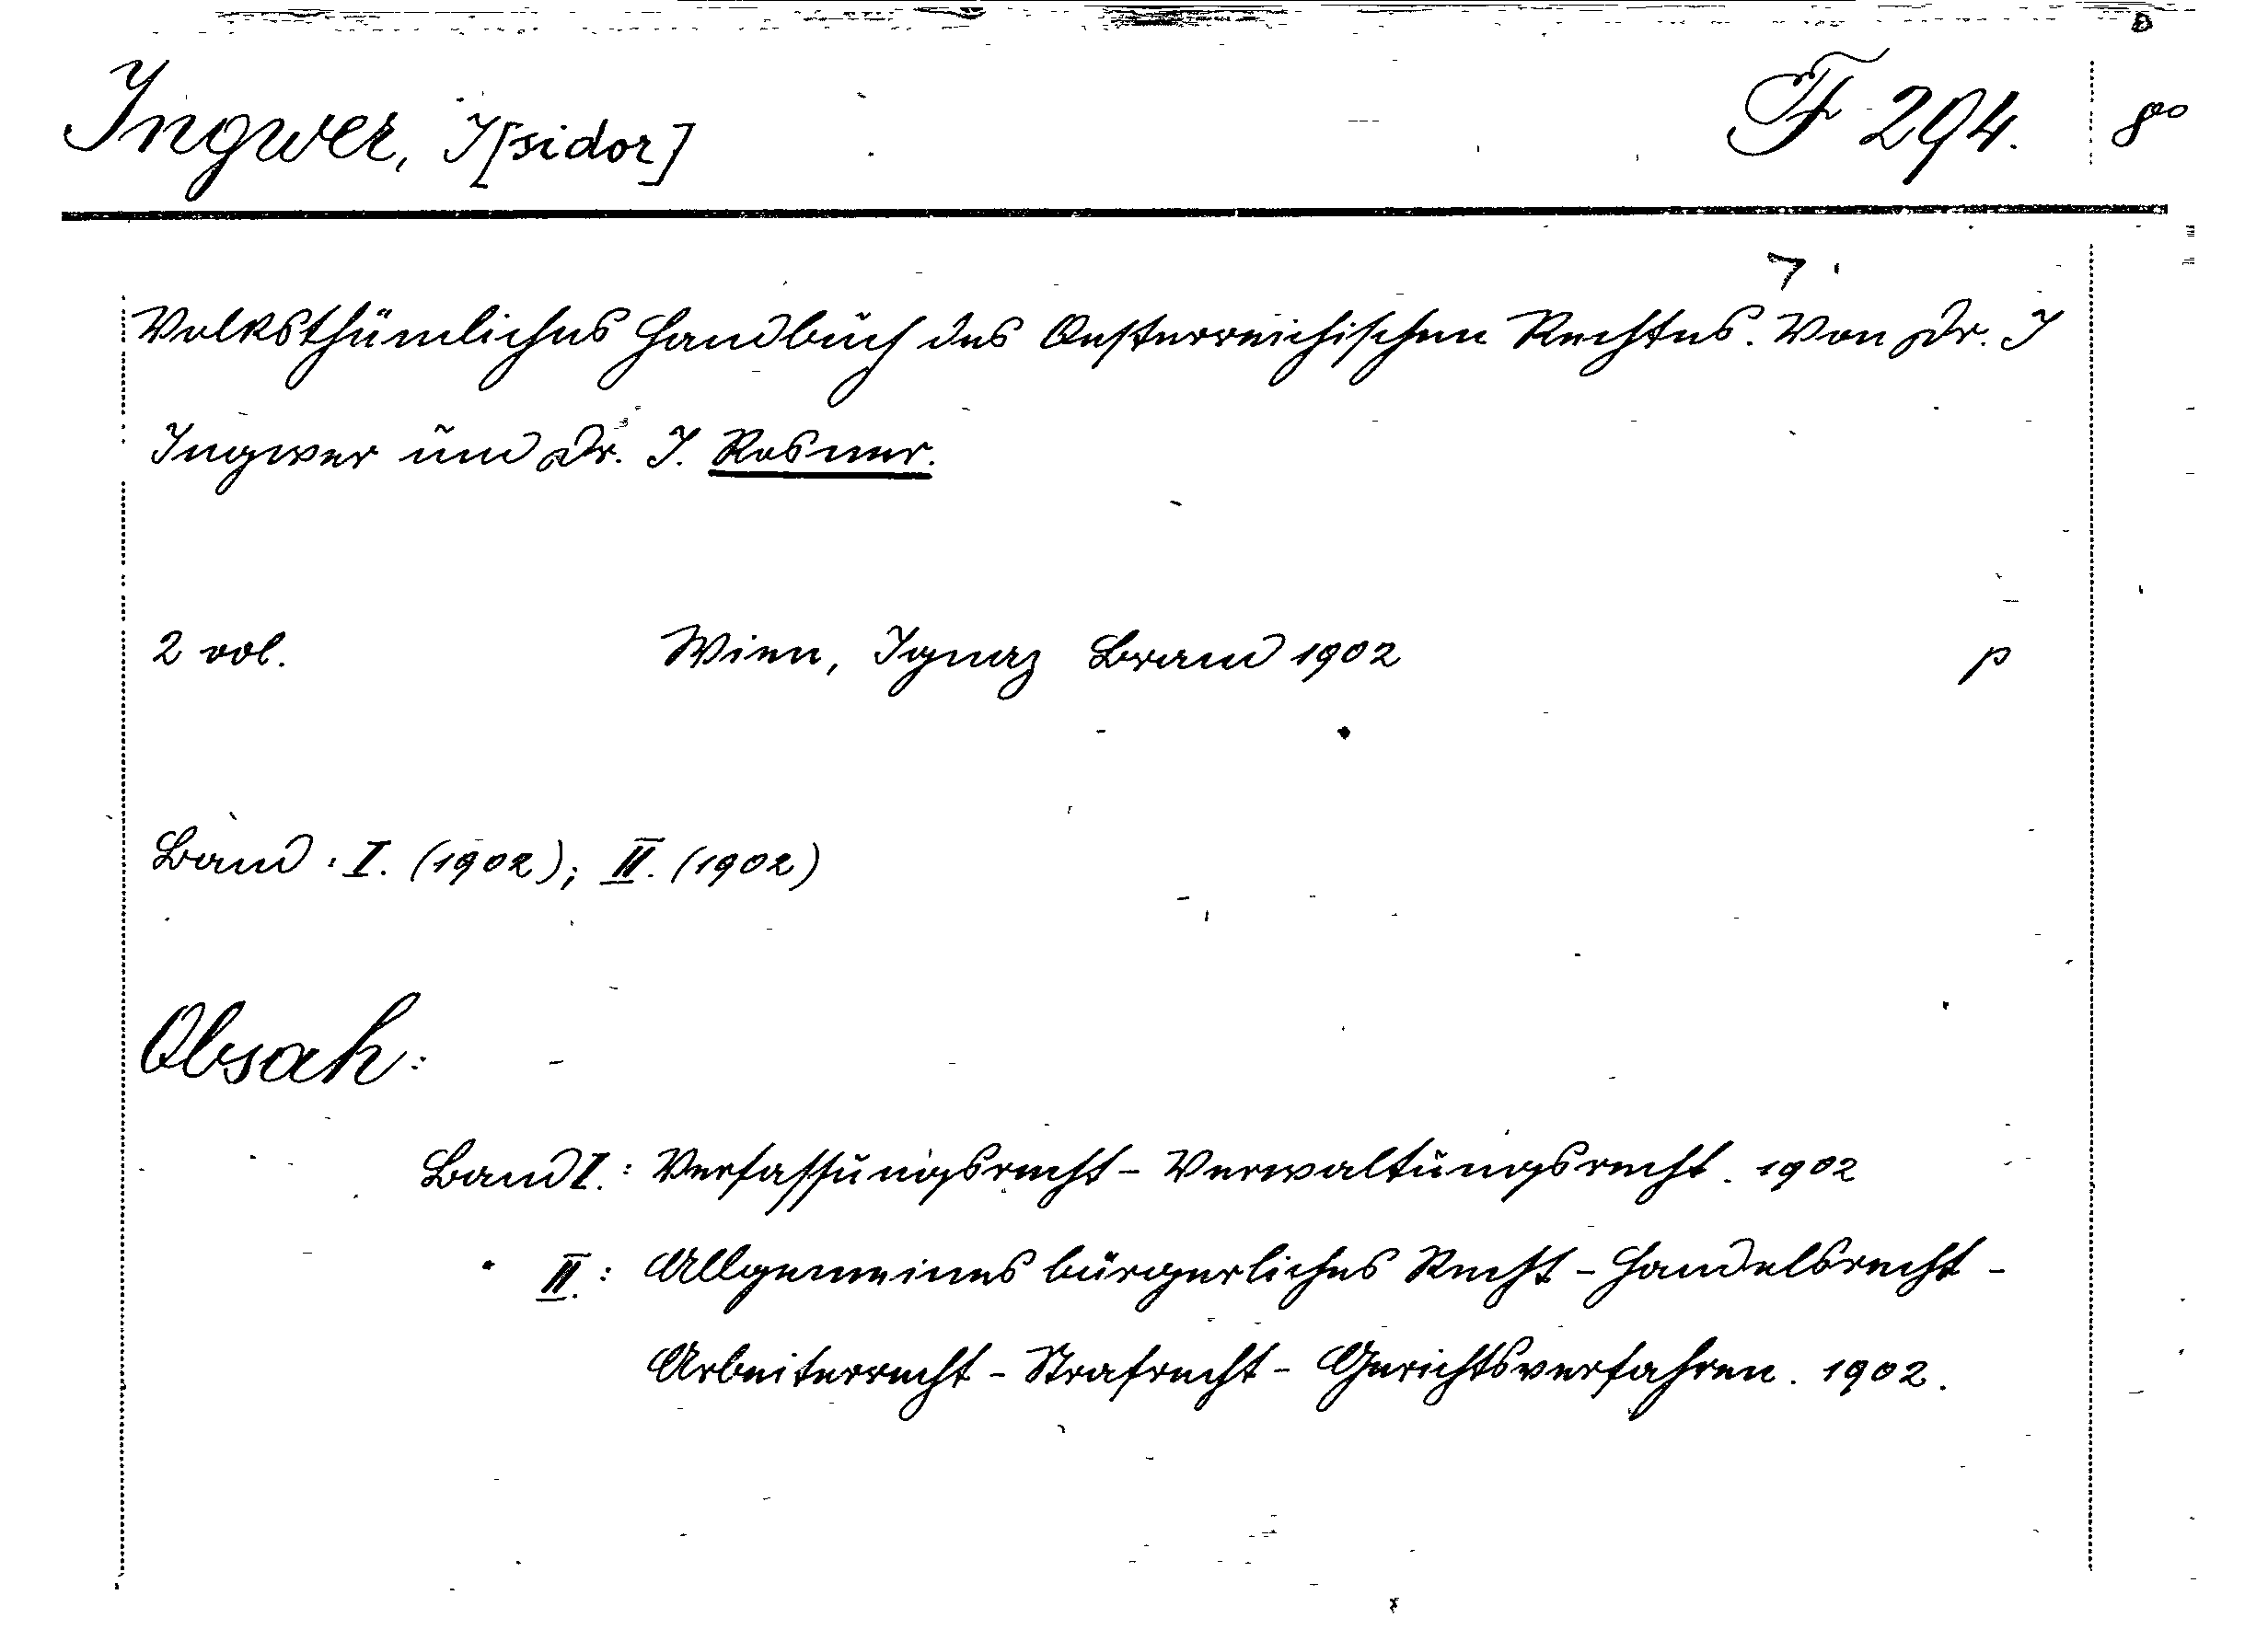 Ingwer, I[sidor] F 294. 8°
Volksthümliches Handbuch des Oesterreichischen Rechtes. Von Dr. I
Ingwer und Dr. I. Rosner.
2 vol. Wien, Ignaz Brand 1902 p
Band: I. (1902); II. (1902)
Obsah:
Band I.: Verfassungsrecht - Verwaltungsrecht. 1902
" II.: Allgemeines bürgerliches Recht - Handelsrecht -
Arbeiterrecht - Strafrecht - Gerichtsverfahren. 1902.